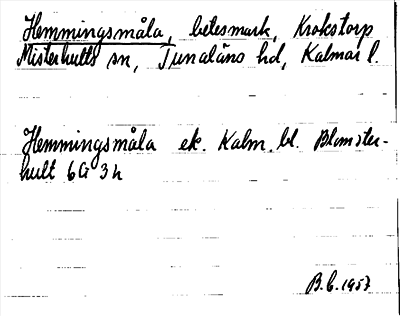 Hemmingsmåla, betesmark, Krokstorp
Misterhults sn, Tunaläns hd, Kalmar l.
Hemmingsmåla ek. Kalm. bl. Blomster-
hult 6G 3h
B.G. 1957